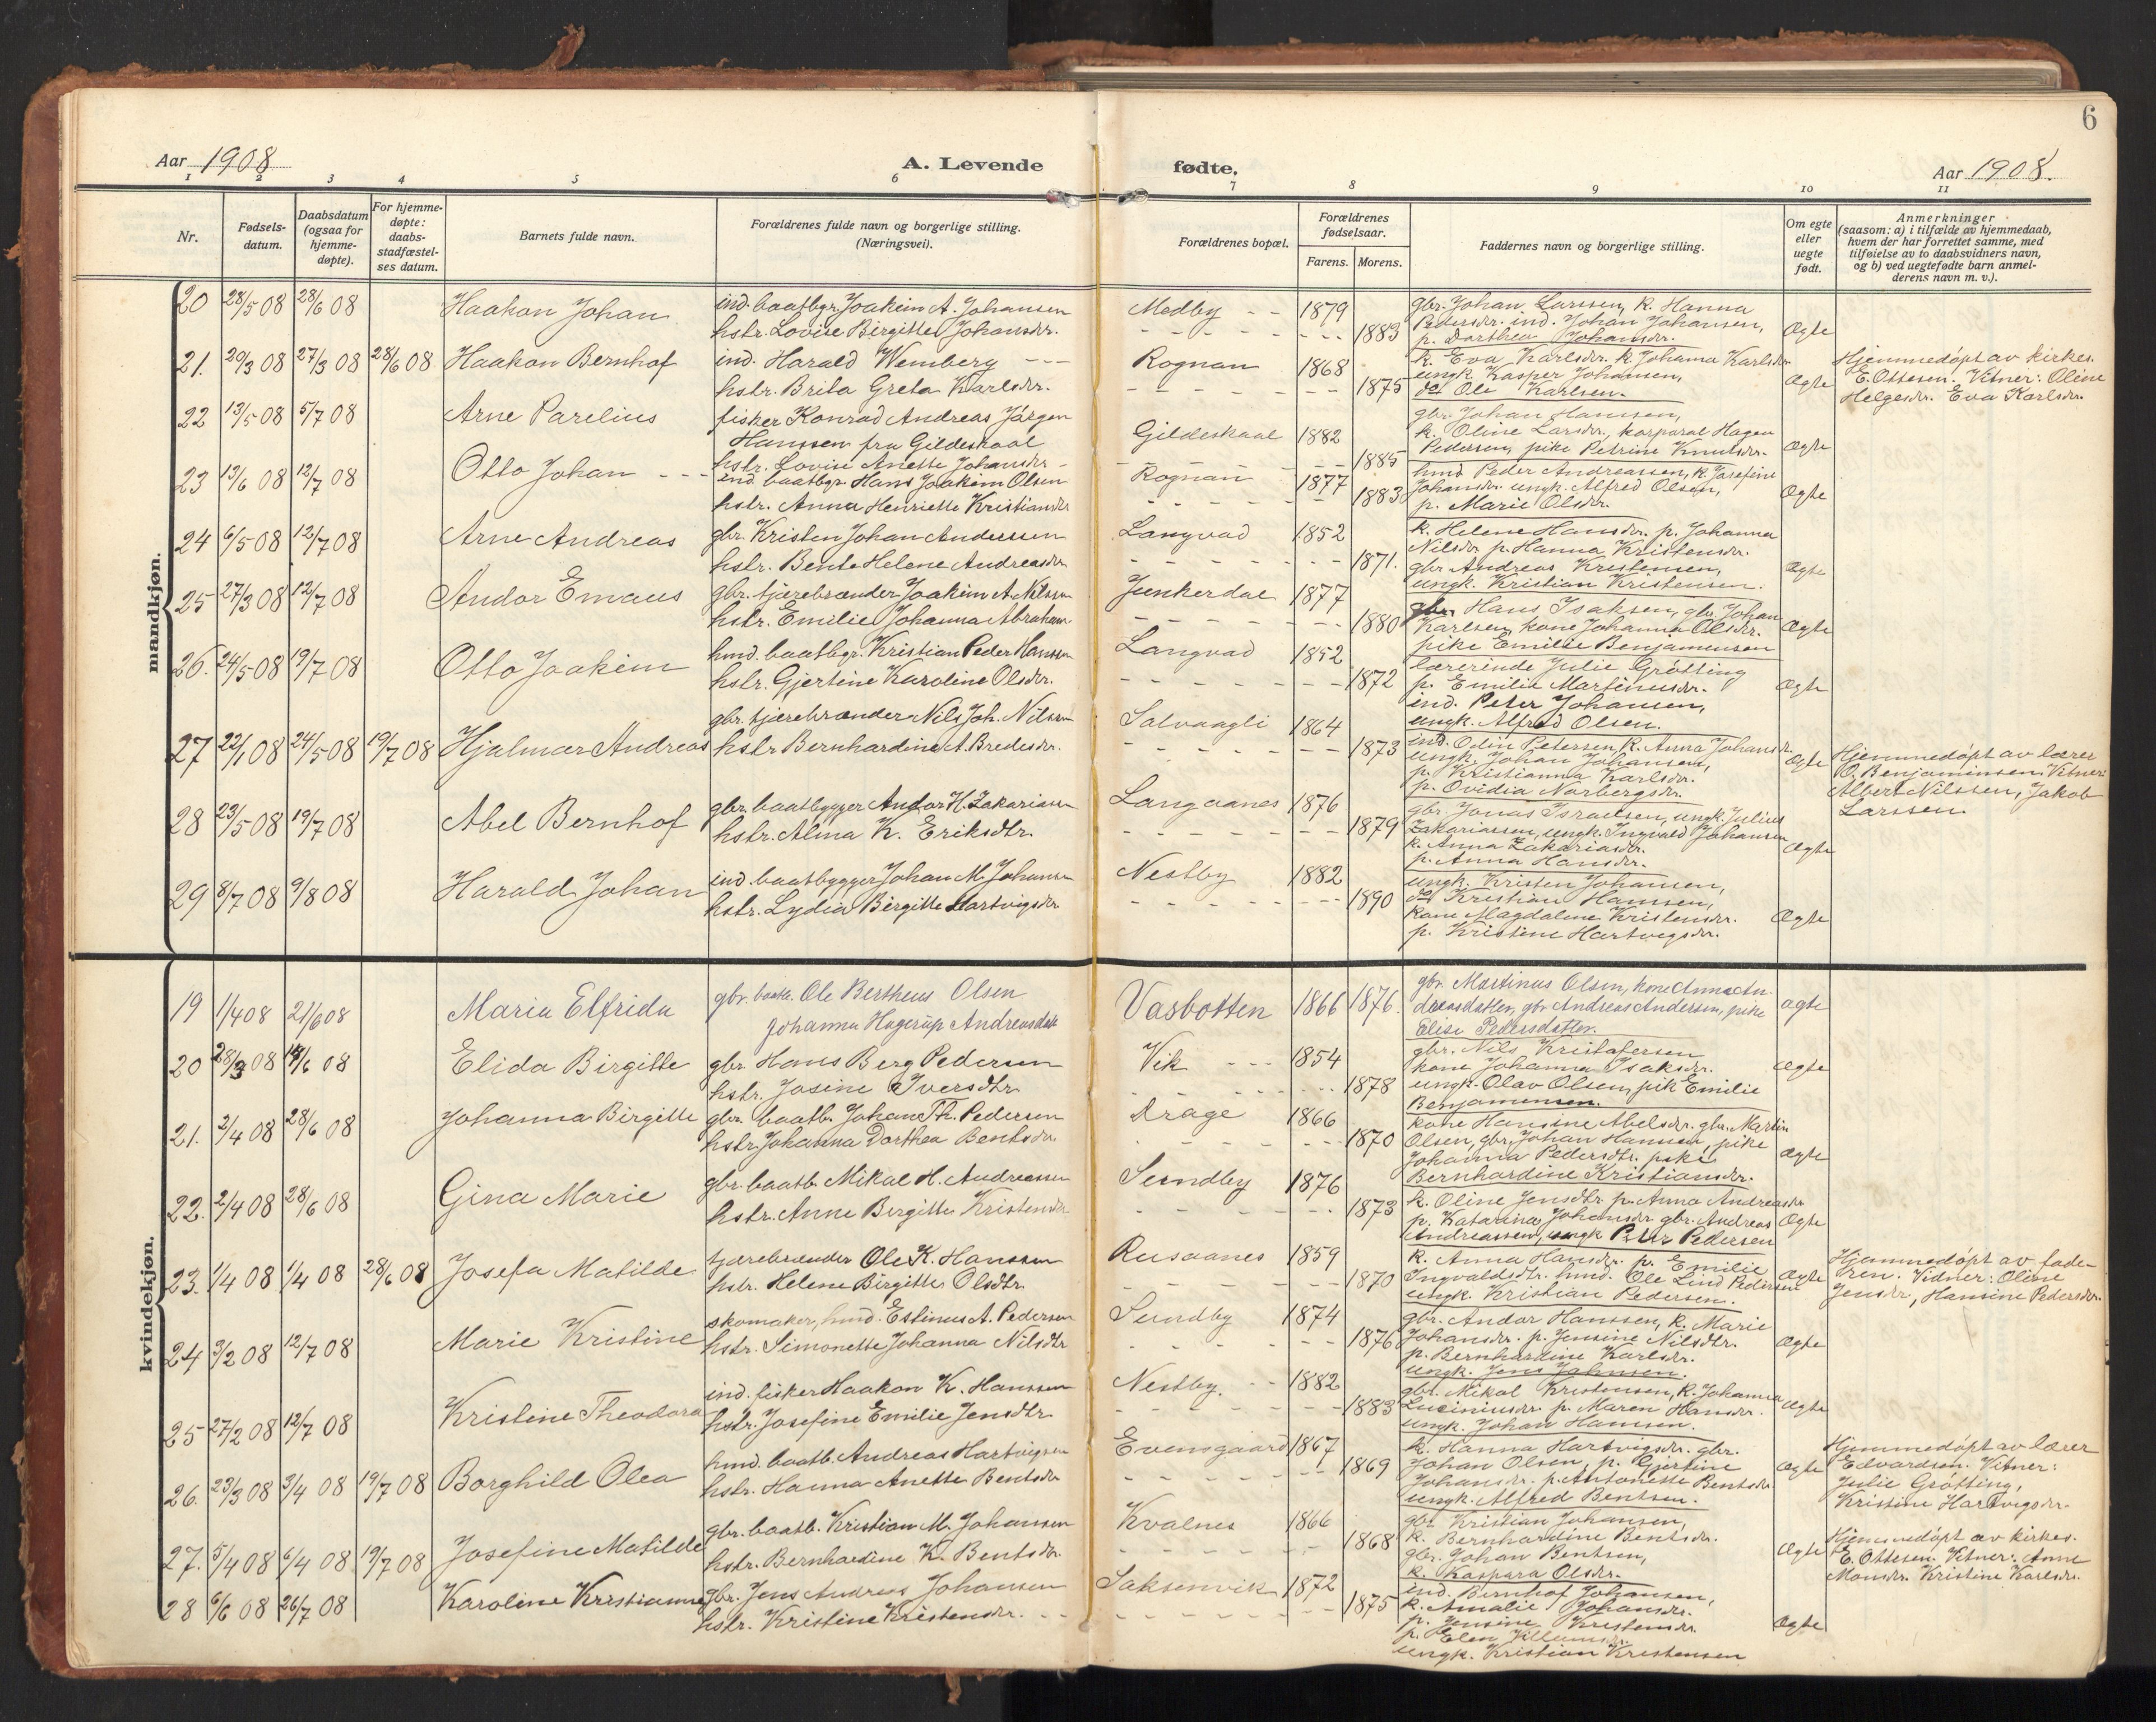 6
Aar 1908
A. Levende
fødte.
Aar 1908.
1 2 3 4 5 6 7 8 9 10 11
Nr.
Fødsels-
datum.
Daabsdatum
(ogsaa for
hjemme-
døpte).
For hjemme-
døpte:
daabs-
stadfæstel-
ses datum.
Barnets fulde navn.
Forældrenes fulde navn og borgerlige stilling.
(Næringsvei).
Forældrenes bopæl.
Forældrenes
fødselsaar.
Farens. Morens.
Faddernes navn og borgerlige stilling.
Om egte
eller
uegte
født.
Anmerkninger
(saasom: a) i tilfælde av hjemmedaab,
hvem der har forrettet samme, med
tilføielse av to daabsvidners navn,
og b) ved uegtefødte barn anmel-
derens navn m. v.).
mandkjøn.
20 28/5 08 28/6 08 Haakon Johan
ind. baatbgr. Joakim A. Johansen
hstr. Lovise Birgitte Johansdr.
Medby 1879 1883
gbr. Johan Larssen, k. Hanna
Pedersdr. ind. Johan Johansen,
p. Dorthea Johansdr.
Ægte
21. 20/3 08 27/3 08 28/6 08 Haakon Bernhof
ind. Harald Wemberg
hstr. Brita Greta Karlsdr.
Rognan 1868 1875
k. Eva Karlsdr. k. Johanna Karlsdr.
ungk. Kasper Johansen,
do Ole Karlsen.
Ægte
Hjemmedøpt av kirkes.
E. Ottesen. Vitner: Oline
Helgesdr. Eva Karlsdr.
22 13/5 08 5/7 08 Arne Parelius
fisker Konrad Andreas Jørgen
Hanssen fra Gildeskaal
hstr. Lovise Anette Johansdr
Gildeskaal 1882 1885
gbr. Johan Hanssen,
k. Oline Larsdr, korporal Hagen
Pedersen, pike Petrine Knutsdr.
Ægte
23 13/6 08 12/7 08 Otto Johan
ind baatbgr Hans Joakim Olsen
hstr. Anna Henriette Kristiansdr
Rognan 1877 1883
hmd Peder Andreassen, k. Josefine
Johansdr. ungk. Alfred Olsen,
p. Marie Olsdr.
Ægte
24 6/5 08 12/7 08 Arne Andreas
gbr. Kristen Johan Anderssen
hstr. Bente Helene Andreasdr
Langvad 1852 1871.
k. Helene Hansdr. p. Johanna
Nilsdr p. Hanna Kristensdr.
gbr Andreas Kristensen,
ungk. Kristian Kristensen.
Ægte
25 27/3 08 12/7 08 Andor Emaus
gbr. tjærebrænder Joakim A. Nilssen
hstr. Emilie Johanna Abraham
Junkerdal 1877 1880
gbr Hans Isaksen, gbr. Johan
Karlsen, kone Johanna Olsdr.
pike Emilie Benjaminsen
Ægte
26. 24/5 08 19/7 08 Otto Joakim
hmd. baatbgr. Kristian Peder Hanssen
hstr. Gjertine Karoline Olsdr.
Langvad 1852 1872
lærerinde Julie Grøtting
p. Emilie Martinusdr.
ind. Peter Johansen,
ungk. Alfred Olsen.
Ægte
27 22/1 08 24/5 08 19/7 08 Hjalmar Andreas
gbr. tjærebrænder Nils Joh. Nilssen
hstr Bernhardine A. Bredesdr.
Solvaagli 1864 1873
ind. Odin Petersen k. Anna Johansdr
ungk. Johan Johansen,
p. Kristianna Karlsdr.
p. Ovidia Norbergsdr.
Ægte
Hjemmedøpt av lærer
O. Benjaminsen. Vitner:
Albert Nilssen, Jakob
Larssen
28 23/5 08 19/7 08 Abel Bernhof
gbr. baatbygger Andor H. Zakariasen
hstr. Alma K. Eriksdtr.
Langaanes 1876 1879
gbr Jonas Israelsen, ungk. Julius
Zakariassen, ungk. Ingvald Johansen
k. Anna Zakariasdr.
p. Anna Hansdr.
Ægte
29 8/7 08 9/8 08 Harald Johan
ind. baatbygger Johan M. Johansen
hstr. Lydia Birgitte Hartvigsdr
Nestby 1882 1890
ungk. Kristen Johansen,
do Kristian Hanssen,
kone Magdalene Kristensdr.
p. Kristine Hartvigsdr.
Ægte
kvindekjøn.
19 1/4 08 21/6 08 Maria Elfrida
gbr. baatb. Ole Bertheus Olsen
Johanna Hagerup Andreasdatt
Vasbotten 1866 1876.
gbr. Martinus Olsen, kone Anna An-
dreasdatter, gbr Andreas Andersen, pike
Elise Pedersdatter.
ægte
20 28/3 08 14/6 08 Elida Birgitte
gbr. Hans Berg Pedersen
hstr. Josine Iversdtr.
Vik 1854 1878
gbr. Nils Kristofersen
kone Johanna Isaksdr.
ungk. Olav Olsen, pik Emilie
Benjaminsen.
Ægte
21. 2/4 08 28/6 08 Johanna Birgitte
gbr. baatb. Johan Th. Pedersen
hstr. Johanna Dorthea Bentsdr.
Drage 1866 1870
kone Hansine Abelsdr. gbr. Martin
Olsen, gbr. Johan Hanssen, pike
Johanna Pedersdtr. pike
Bernhardine Kristiansdr.
Ægte
22. 2/4 08 28/6 08 Gina Marie
gbr. baatb. Mikal H. Andreassen
hstr. Anne Birgitte Kristensdr
Sundby 1876 1873
k. Oline Jensdtr p. Anna Andreasdr
p. Katarina Johansdr gbr. Andreas
Andreassen, ungk Peter Pedersen
Ægte
23. 1/4 08 1/4 08 28/6 08 Josefa Matilde
tjærebrænder Ole K. Hanssen
hstr. Helene Birgitte Olsdtr.
Rusaanes 1859 1870
k. Anna Hansdr. p. Emilie
Ingvaldsdtr. hmd. Ole Lind Pedersen
ungk. Kristian Pedersen.
Ægte
Hjemmedøpt av fade-
ren. Vidner: Oline
Jensdr, Hansine Pedersdr.
24 3/2 08 12/7 08 Marie Kristine
skomaker, hmd. Estinus A. Pedersen
hstr. Simonette Johanna Nilsdtr
Sundby 1874 1876
gbr. Andor Hanssen, k. Marie
Johansdr. p. Jensine Nilsdtr.
p. Bernhardine Karlsdr.
ungk. Jens Johnsen.
Ægte
25 27/2 08 12/7 08 Kristine Theodora
ind. fisker Haakon K. Hanssen
hstr. Josefine Emilie Jensdtr
Nestby. 1882 1883
gbr. Mikal Kristensen, k. Johanna
Luciniusdr p. Maren Hansdr.
ungk. Johan Hanssen.
Ægte
26. 23/3 08 3/4 08 19/7 08 Borghild Olea
hmd. baatb. Andreas Hartvigsen
hstr. Hanna Anette Bentsdr
Evensgaard 1867 1869
k. Hanna Hartvigsdr. gbr.
Johan Olsen, p. Gjertine
Johansdr. p. Antonette Bentsdr
ungk. Alfred Bentsen.
Ægte
Hjemmedøpt av lærer
Edvardsen. Vitner:
Julie Grøtting,
Kristine Hartvigsdr.
27. 5/4 08 6/4 08 19/7 08 Josefine Matilde
gbr. baatb. Kristian M. Johansen
hstr. Bernhardine K. Bentsdr.
Kvalnes 1866 1868
gbr Kristian Johansen,
k. Bernhardine Bentsdr.
gbr. Johan Bentsen,
k. Kaspara Olsdr.
Ægte
Hjemmedøpt av kirkes.
E. Ottesen. Vitner: Anne
Monsdr. Kristine Karlsdr.
28 6/6 08 26/7 08 Karoline Kristianne
gbr. Jens Andreas Johansen
hstr. Kristine Kristensdr.
Saksenvik 1872 1875
ind. Bernhof Johansen,
k. Amalie Johansdr.
p. Jensine Kristensdr
p. Elen
ungk. Kristian Kristensen
Ægte